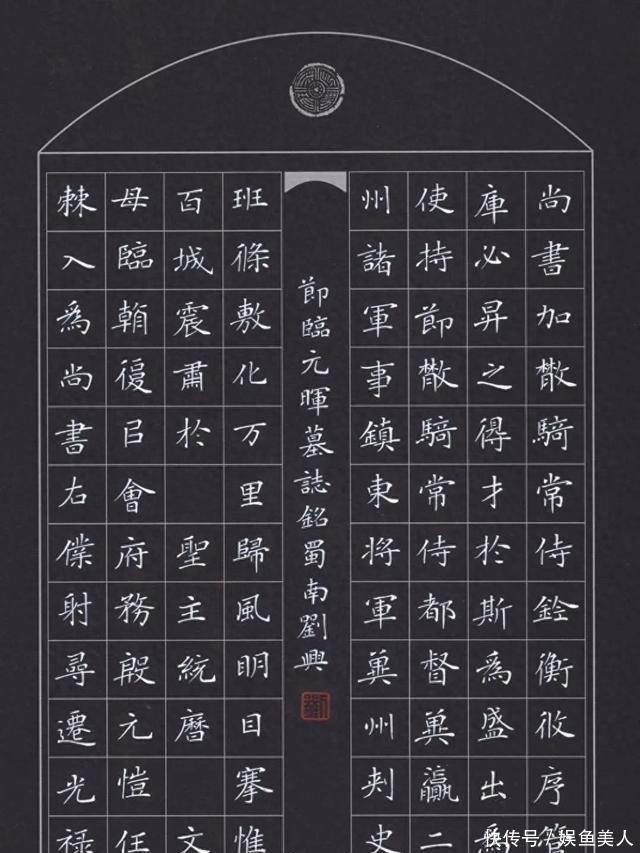 尚書加散騎常侍銓衡攸序管
庫必昇之得才於斯爲盛出爲
使持節散騎常侍都督冀瀛二
州諸軍事鎮東將軍冀州刺史
節臨元暉墓誌銘蜀南劉興
劉
班條敷化万里歸風明目搴惟
百城震肅於 聖主統曆 文
母臨朝復㠯會府務殷元愷任
棘入爲尚書右僕射尋遷光祿
快传号/娱鱼美人